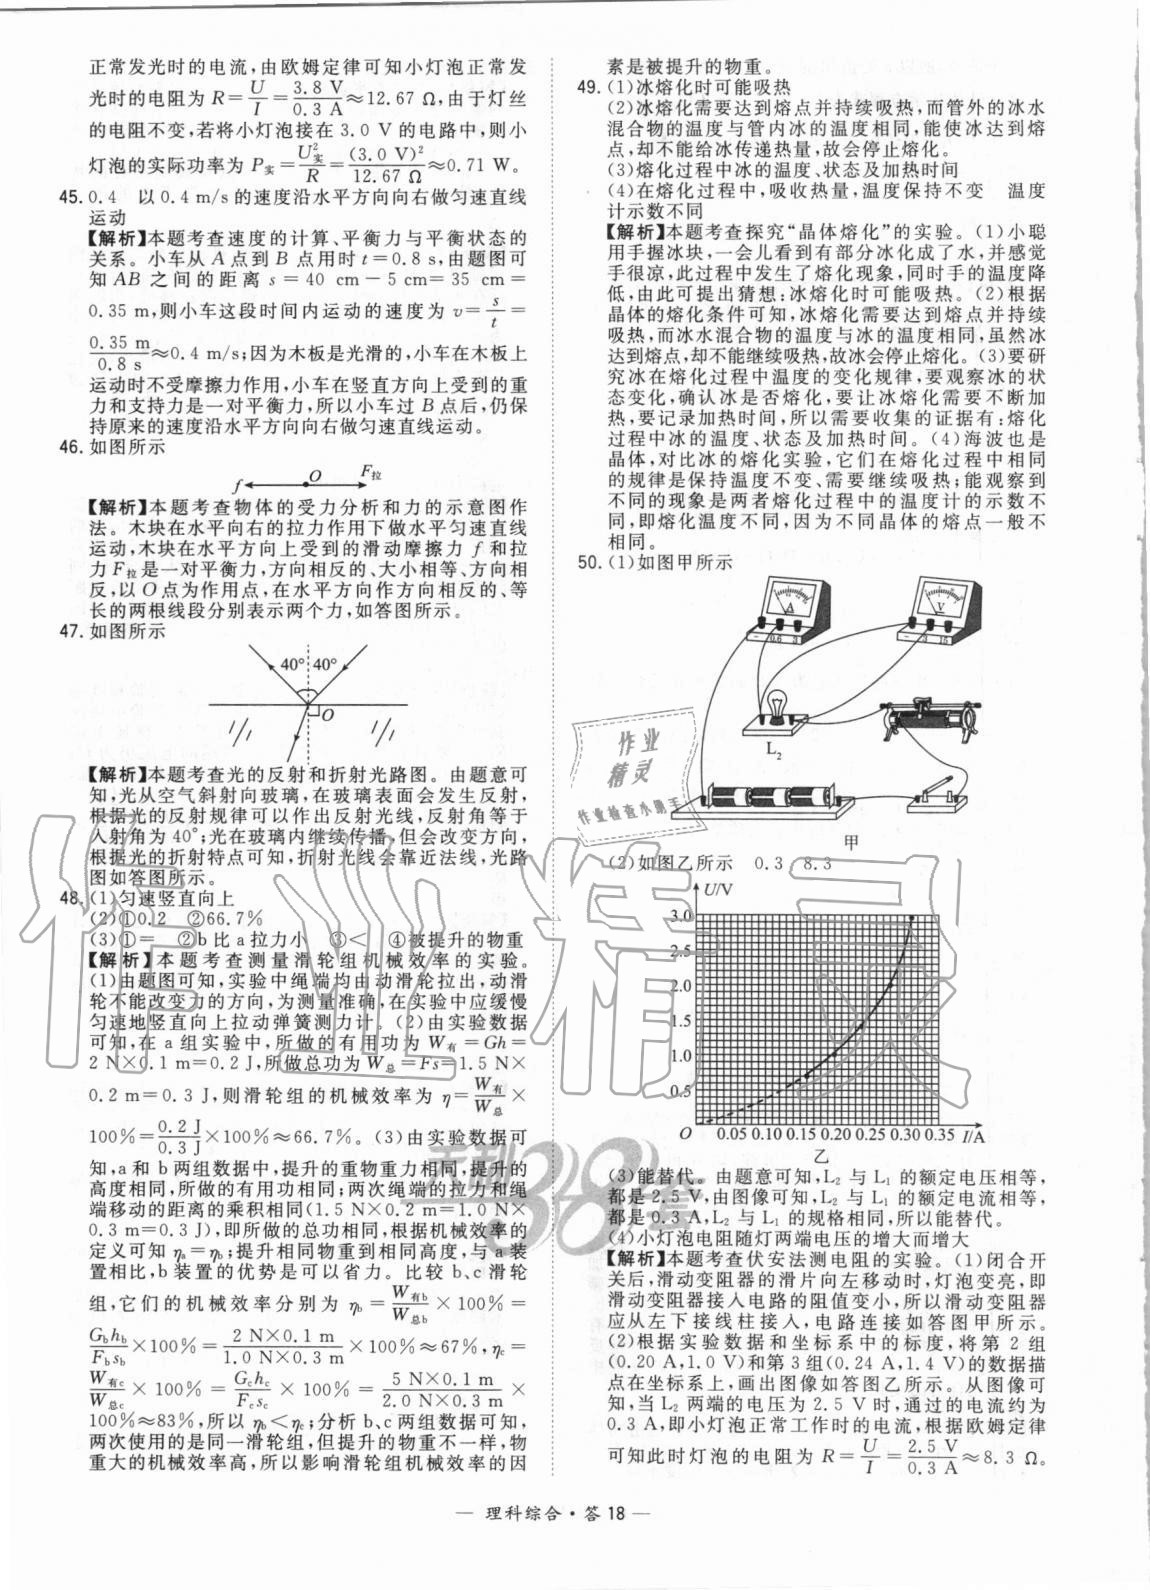 正常发光时的电流,由欧姆定律可知小灯泡正常发
光时的电阻为 R=U/I=3.8 V/0.3 A≈12.67 Ω,由于灯丝
的电阻不变,若将小灯泡接在 3.0 V 的电路中,则小
灯泡的实际功率为 P实=U²实/R=(3.0 V)²/12.67 Ω≈0.71 W。
45. 0.4 以 0.4 m/s 的速度沿水平方向向右做匀速直线
运动
【解析】本题考查速度的计算、平衡力与平衡状态的
关系。小车从 A 点到 B 点用时 t=0.8 s,由题图可
知 AB 之间的距离 s = 40 cm - 5 cm = 35 cm =
0.35 m,则小车这段时间内运动的速度为 v=s/t=
0.35 m/0.8 s≈0.4 m/s;因为木板是光滑的,小车在木板上
运动时不受摩擦力作用,小车在竖直方向上受到的重
力和支持力是一对平衡力,所以小车过 B 点后,仍保
持原来的速度沿水平方向向右做匀速直线运动。
46. 如图所示
f O F拉
【解析】本题考查物体的受力分析和力的示意图作
法。木块在水平向右的拉力作用下做水平匀速直线
运动,木块在水平方向上受到的滑动摩擦力 f 和拉
力 F拉是一对平衡力,方向相反的、大小相等、方向相
反,以 O 点为作用点,在水平方向作方向相反的、等
长的两根线段分别表示两个力,如答图所示。
47. 如图所示
40° 40°
O
【解析】本题考查光的反射和折射光路图。由题意可
知,光从空气斜射向玻璃,在玻璃表面会发生反射,
根据光的反射规律可以作出反射光线,反射角等于
入射角为 40°;光在玻璃内继续传播,但会改变方向,
根据光的折射特点可知,折射光线会靠近法线,光路
图如答图所示。
48. (1)匀速竖直向上
(2)①0.2 ②66.7%
(3)①= ②b 比 a 拉力小 ③< ④被提升的物重
【解析】本题考查测量滑轮组机械效率的实验。
(1)由题图可知,实验中绳端均由动滑轮拉出,动滑
轮不能改变力的方向,为测量准确,在实验中应缓慢
匀速地竖直向上拉动弹簧测力计。(2)由实验数据
可知,在 a 组实验中,所做的有用功为 W有=Gh=
2 N×0.1 m=0.2 J,所做总功为 W总=Fs=1.5 N×
0.2 m=0.3 J,则滑轮组的机械效率为 η=W有/W总×
100%=0.2 J/0.3 J×100%≈66.7%。(3)由实验数据可
知,a 和 b 两组数据中,提升的重物重力相同,提升的
高度相同,所做的有用功相同;两次绳端的拉力和绳
端移动的距离的乘积相同(1.5 N×0.2 m=1.0 N×
0.3 m=0.3 J),即所做的总功相同,根据机械效率的
定义可知 ηa=ηb;提升相同物重到相同高度,与 a 装
置相比,b 装置的优势是可以省力。比较 b、c 滑轮
组,它们的机械效率分别为 ηb=W有b/W总b×100%=
Gbhb/Fbsb×100%=2 N×0.1 m/1.0 N×0.3 m×100%≈67%,ηc=
W有c/W总c×100%=Gchc/Fcsc=5 N×0.1 m/2.0 N×0.3 m×
100%≈83%,所以 ηb<ηc;分析 b、c 两组数据可知,
两次使用的是同一滑轮组,但提升的物重不一样,物
重大的机械效率高,所以影响滑轮组机械效率的因
素是被提升的物重。
49. (1)冰熔化时可能吸热
(2)冰熔化需要达到熔点并持续吸热,而管外的冰水
混合物的温度与管内冰的温度相同,能使冰达到熔
点,却不能给冰传递热量,故会停止熔化。
(3)熔化过程中冰的温度、状态及加热时间
(4)在熔化过程中,吸收热量,温度保持不变 温度
计示数不同
【解析】本题考查探究“晶体熔化”的实验。(1)小聪
用手握冰块,一会儿看到有部分冰化成了水,并感觉
手很凉,此过程中发生了熔化现象,同时手的温度降
低,由此可提出猜想:冰熔化时可能吸热。(2)根据
晶体的熔化条件可知,冰熔化需要达到熔点并持续
吸热,而冰水混合物的温度与冰的温度相同,虽然冰
达到熔点,却不能继续吸热,故冰会停止熔化。(3)要研
究冰在熔化过程中温度的变化规律,要观察冰的状
态变化,确认冰是否熔化,要让冰熔化需要不断加
热,要记录加热时间,所以需要收集的证据有:熔化
过程中冰的温度、状态及加热时间。(4)海波也是
晶体,对比冰的熔化实验,它们在熔化过程中相同
的规律是保持温度不变、需要继续吸热;能观察到
不同的现象是两者熔化过程中的温度计的示数不
同,即熔化温度不同,因为不同晶体的熔点一般不
相同。
50. (1)如图甲所示
A
- 0.6 3
V
- 3 15
L₂
甲
(2)如图乙所示 0.3 8.3
U/V
3.0
2.5
2.0
1.5
1.0
0.5
O 0.05 0.10 0.15 0.20 0.25 0.30 0.35 I/A
乙
(3)能替代。由题意可知,L₂ 与 L₁ 的额定电压相等,
都是 2.5 V,由图像可知,L₂ 与 L₁ 的额定电流相等,
都是 0.3 A,L₂ 与 L₁ 的规格相同,所以能替代。
(4)小灯泡电阻随灯两端电压的增大而增大
【解析】本题考查伏安法测电阻的实验。(1)闭合开
关后,滑动变阻器的滑片向左移动时,灯泡变亮,即
滑动变阻器接入电路的阻值变小,所以滑动变阻器
应从左下接线柱接入,电路连接如答图甲所示。
(2)根据实验数据和坐标系中的标度,将第 2 组
(0.20 A,1.0 V)和第 3 组(0.24 A,1.4 V)的数据描
点在坐标系上,画出图像如答图乙所示。从图像可
知,当 L₂ 两端的电压为 2.5 V 时,通过的电流约为
0.3 A,即小灯泡正常工作时的电流,根据欧姆定律
可知此时灯泡的电阻为 R=U/I=2.5 V/0.3 A≈8.3 Ω。
作业
精灵
作业检查小帮手
作业精灵
天利38套
— 理科综合·答 18 —